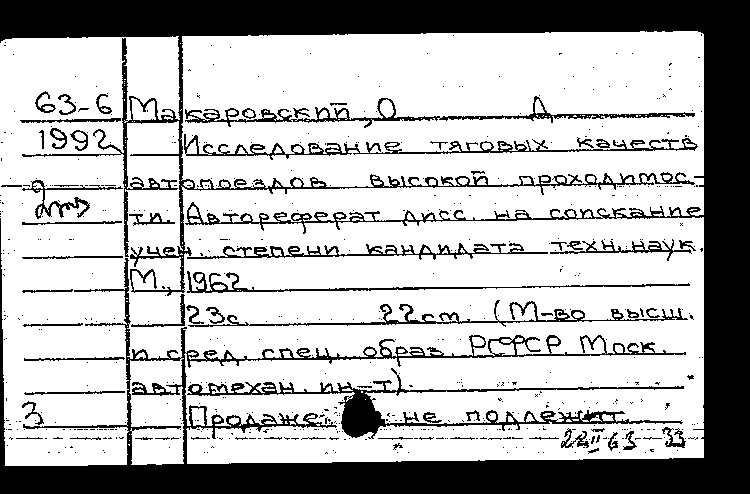 63-6 Макаровский, О Д
1992 Исследование тяговых качеств
автопоездов высокой проходимос-
ти. Автореферат дисс. на соискание
учен. степени кандидата техн. наук.
М., 1962.
23с. 22см. (М-во высш.
и сред. спец. образ. РСФСР. Моск.
автомехан. ин-т).
3 Продаже не подлежит.
22 II 63 33